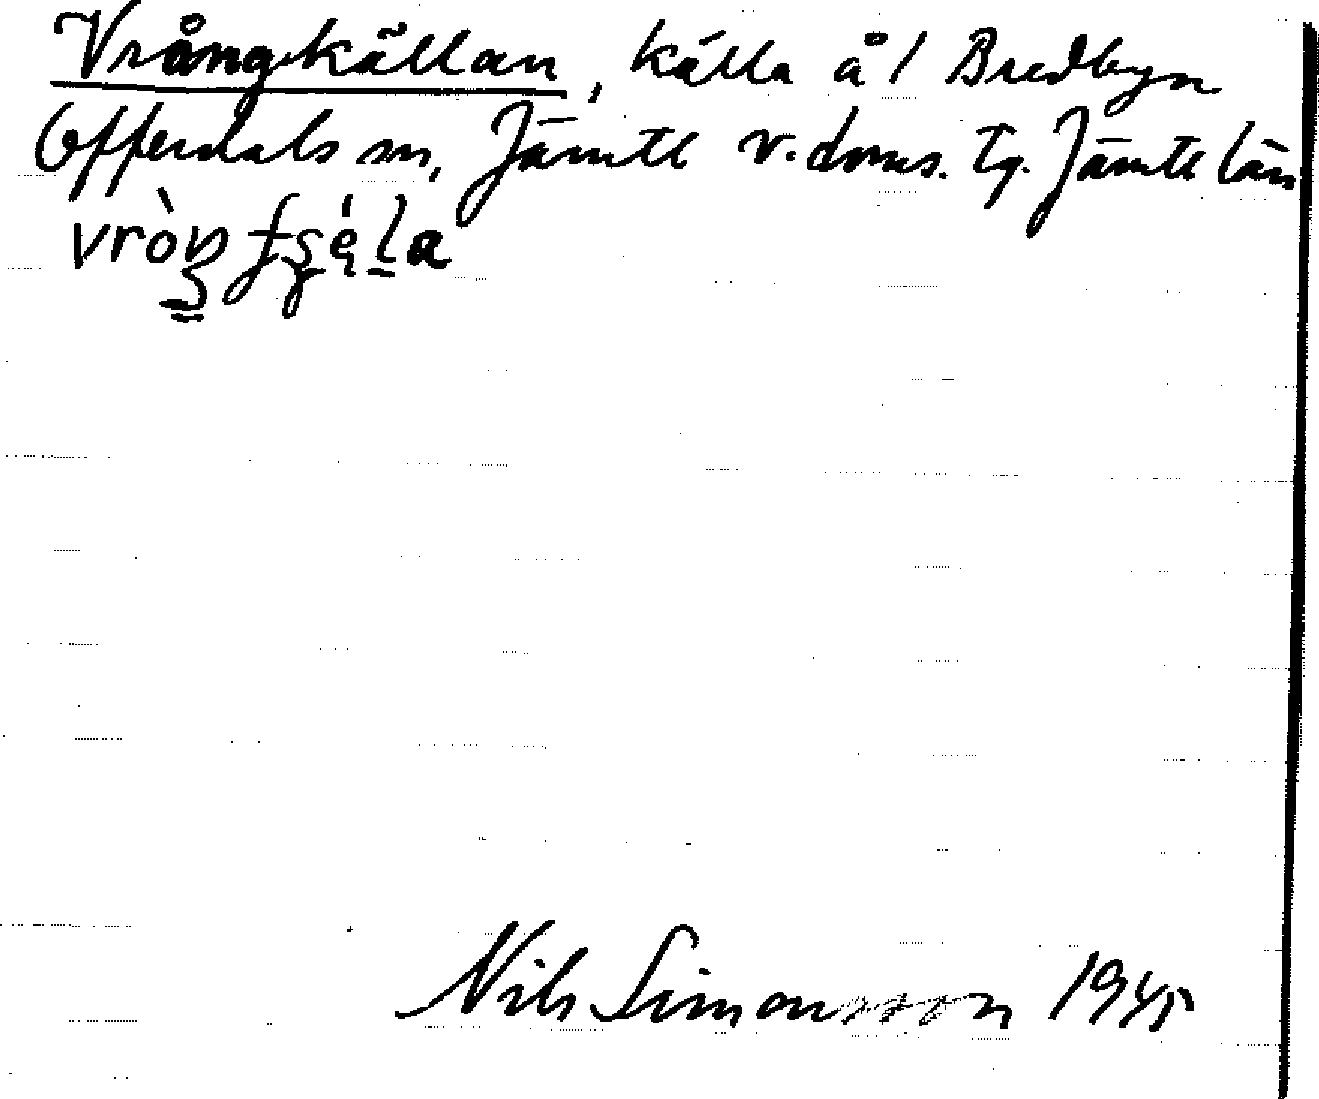 Vrångkällan, källa å 1 Bredbyn
Offerdals sn, Jämtl v. doms. tg. Jämtl län
Nils Simonsson 1945